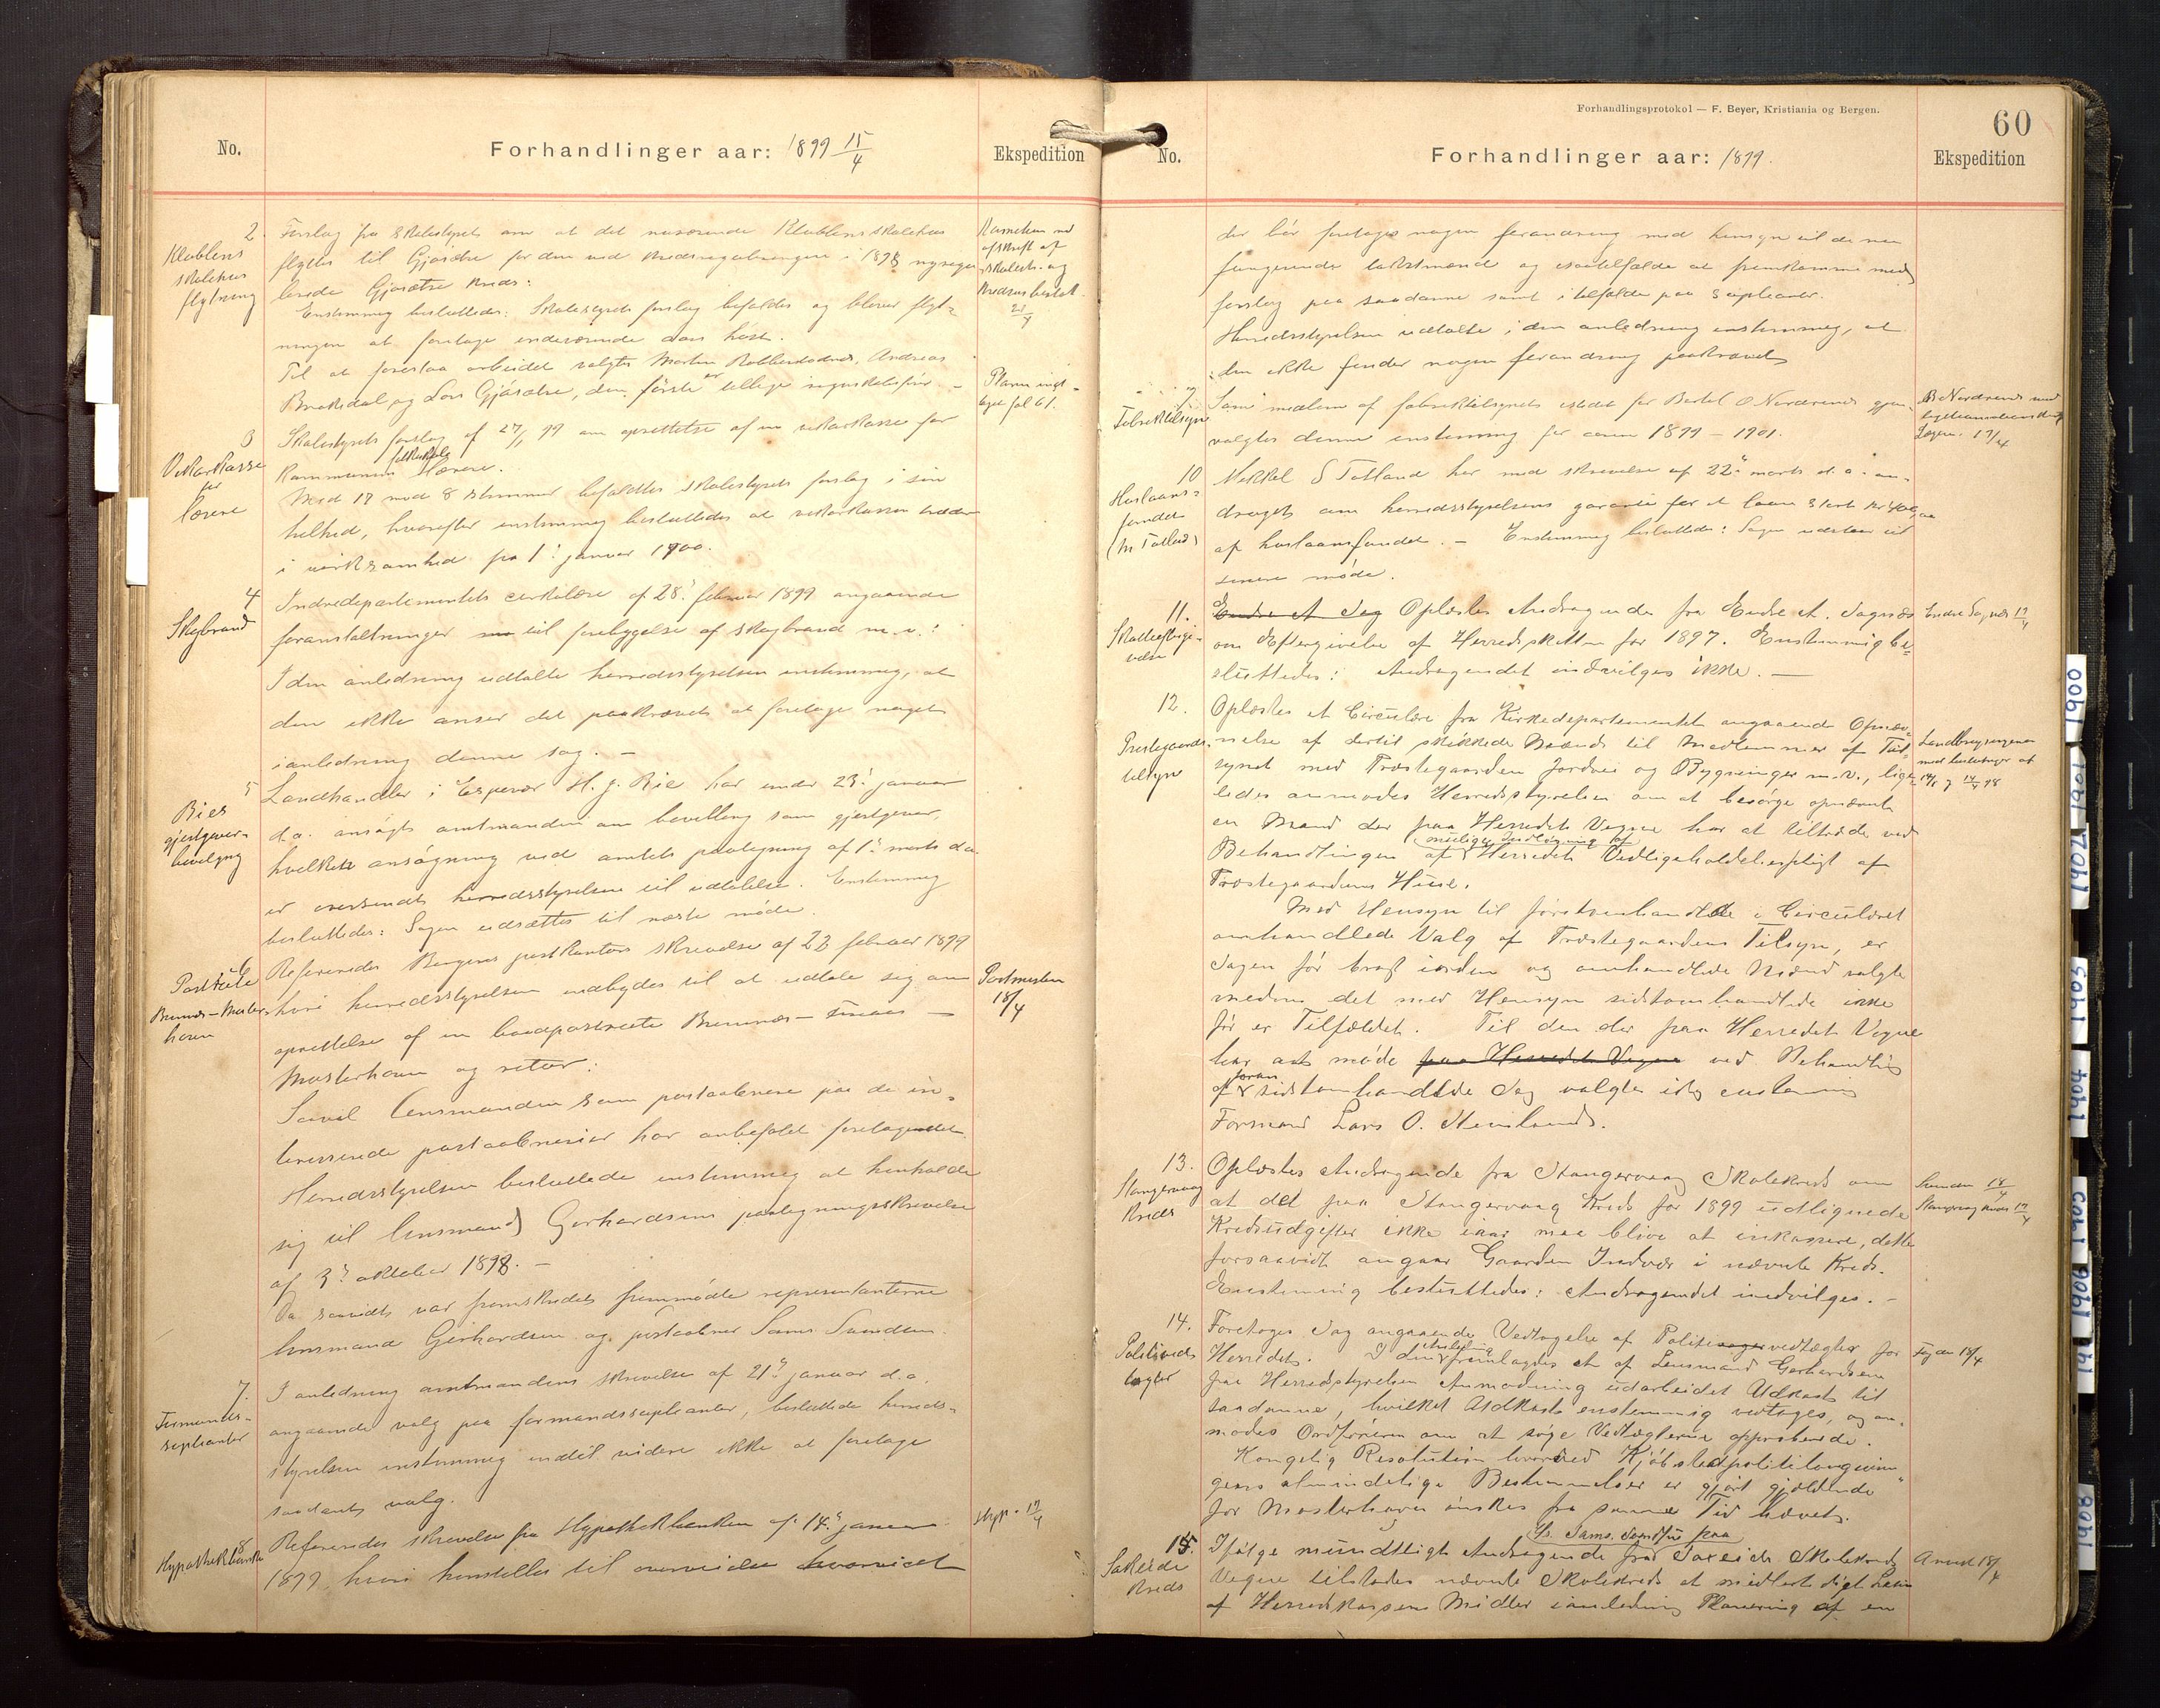 No.
Forhandlinger aar: 1899 15/4
Ekspedition
2.
Klubbens
skolehus
flytning
Forslag fra skolestyret om at det nuværende Klubbens skolehus
flyttes til Gjøsæter for den ved kredsreguleringen i 1898
Gjøsæter kreds:
Enstemmig besluttedes: Skolestyrets forslag befaldes og bliver flyt-
ningen at foretage indeværende aars høst.
Til at forestaa arbeidet valgtes Morten Andreas
Brakedal og Lars Gjøsæter, den første er tillige
afskrift af
skolest. og
21/4
Planen ind-
taget fol 61.
3
Vikarkasse
for
lærere
Skolestyrets forslag af 27/1 99 om oprettelse af en vikarkasse for
kommunens folkeskole lærere.
Med 17 mod 8 stemmer befaldtes skolestyrets forslag i sin
helhed, hvorefter enstemmig besluttedes at vikarkassen træder
i virksomhed fra 1. januar 1900.
4
Skogbrand
Indredepartementets cirkulære af 28. februar 1899 angaaende
foranstaltninger til forebyggelse af skogbrand m. v.:
I den anledning udtalte herredsstyrelsen enstemmig, at
den ikke anser det paakrævet at foretage noget
i anledning denne sag. —
5
Bies
gjestgiver-
bevilgng
Landhandler i Espevær H. J. Bie har under 23. januar
d.a. ansøgt amtmanden om bevilling som gjestgiver,
hvilken ansøgning ved amtets paategning af 1. marts d.a.
er oversendt herredsstyrelsen til udtalelse. Enstemmig
besluttedes: Sagen udsættes til næste møde.
6
Postrute
Bremnes-Moster-
havn
Refereredes Bergens postkontors skrivelse af 22 februar 1899
hvori herredsstyrelsen indbydes til at udtale sig om
oprettelse af en baadpostrute Bremnes – –
Mosterhavn og retur:
Saavel lensmanden som postaabnere paa de in-
teresserede postaabnerier har anbefalet foretagendet.
Herredsstyrelsen besluttede enstemmig at henholde
sig til lensmand Gerhardsens paategningsskrivelse
af 3. oktober 1898. —
Da saavidt var fremskredet fremmødte repræsentanterne
lensmand Gerhardsen og postaabner Sams. Svendsen.
Postmesteren
18/4
7.
Formands-
suppleanter
I anledning amtmandens skrivelse af 21. januar d.a.
angaaende valg paa formandssuppleanter, besluttede herreds-
styrelsen enstemmig indtil videre ikke at foretage
saadant valg.
8
Hypothekbanken
Refereredes skrivelse fra Hypothekbanken af 14. januar
1899, hvori henstilles til overveielse hvorvidt
Hyp. 17/4
Forhandlingsprotokol — F. Beyer, Kristiania og Bergen.
60
No.
Forhandlinger aar: 1899.
Ekspedition
der bør foretages nogen forandring med hensyn til de nu
fungerende takstmænd og isaatilfælde at fremkomme med
forslag paa saadanne samt i tilfælde paa suppleanter.
Herredsstyrelsen udtalte i den anledning enstemmig, at
den ikke finder nogen forandring paakrævet
9
Fabriktilsyn
Som medlem af fabriktilsynet istedet for Bertel O Nordanes gjen-
valgtes denne enstemmig for aarene 1899 – 1901.
B Nordanes med
Lægen. 17/4
10
Huslaans-
fondet
(M Totland)
Mikkel S Totland har med skrivelse af 22. marts d. a. an-
draget om herredsstyrelsens garanti for et laan stort kr 400,00
af huslaansfondet. – Enstemmig besluttedes: Sagen udstaar til
senere møde.
11.
Skatteeftergi-
velse
Endre A Sag Oplæstes Andragende fra Endre A. Sagnæs
om Eftergivelse af Herredsskatten for 1897. Enstemmig be-
sluttedes: Andragendet indvilges ikke. —
Endre Sagnæs 17/4
12.
Prestegaards-
tilsyn
Oplæstes et Circulære fra Kirkedepartementet angaaende Opnæv-
nelse af dertil skikkede Mænd til Medlemmer af Til-
synet med Præstegaarden Jordvei og Bygninger m. v., lige-
ledes anmodes Herredsstyrelsen om at besørge opnævnt
en Mand der paa Herredets Vegne har at tiltræde ved
Behandlingen af mulig Indløsning af Herredets Vedligeholdelsespligt af
Præstegaardens Huse.
Med Hensyn til førstomhandlede i Circulæret
omhandlede Valg af Præstegaardens Tilsyn, er
Sagen før bragt i orden og omhandlede Mænd valgte
medens det med Hensyn sidstomhandlede ikke
før er Tilfældet. Til den der paa Herredets Vegne
har at møde paa Herredets Vegne ved Behandling
af foran sidstomhandlede Sag valgtes enstemmig
Formand Lars O. Steinsland.
13.
Stangervaag
Kreds
Oplæstes Andragende fra Stangervaag Skolekreds om
at det paa Stangervaag Kreds for 1899 udlignede
Kredsudgifter ikke iaar maa blive at inkassere, dette
forsaavidt angaar Gaarden Indvær i nævnte Kreds.
Enstemmig besluttedes: Andragendet indvilges. –
18/4
Stangervaag kreds 17/4
14.
Politived-
tægter
Foretoges Sag angaaende Vedtagelse af Politivedtægter for
Herredet. I den Anledning fremlagdes et af Lensmand Gerhardsen
paa Herredsstyrelsens Anmodning udarbeidet Udkast til
saadanne, hvilket Udkast enstemmig vedtoges, og an-
modes Ordføreren om at søge Vedtægterne approberede.
Kongelig Resolution hvorved Kjøbstedpolitilovgivnin-
gens almindelige Bestemmelser er gjort gjældende
for Mosterhavn ønskes fra samme Tid hævet.
18/4
15.
Sakseide
Kreds
Ifølge mundtligt Andragende fra Hr. Sams. paa Sakseide Skolekreds
Vegne tilstodes nævnte Skolekreds et midlertidigt Laan
af Herredskassens Midler i anledning Planering af en
18/4
1900
1901
1902
1903
1904
1905
1906
1907
1908